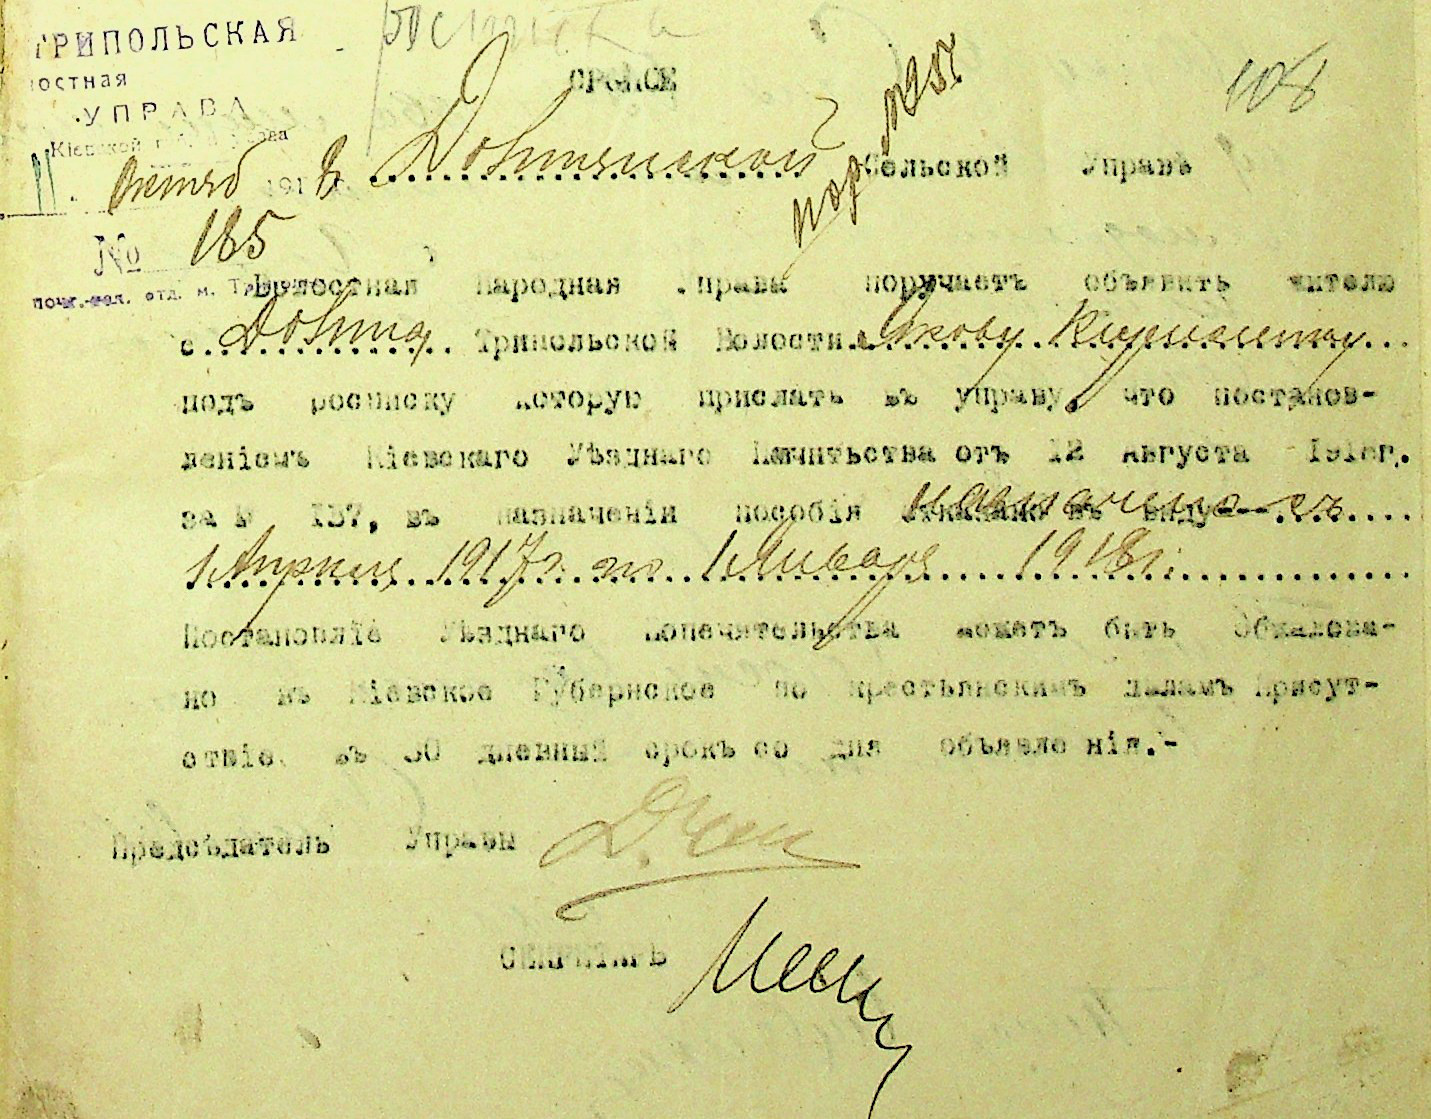 ТРИПОЛЬСКАЯ
остная
УПРАВА
Кіевской губ.
11 Октяб 191
108
СРОЧСЕ
Сельской Управѣ
№ 185
почт.-тел. отд. м.
Волостная Народная Управа поручаетъ объявить жителю
с. Трипольской Волости Якову
подъ росписку которую прислать въ управу, что постанов-
леніемъ Кіевскаго Уѣзднаго отъ 12 Августа 1918г.
за № 137, въ назначеніи пособія отказано въ виду назначено съ
1 Апреля 1917 г. по 1 Января 1918 г.
Постановліе Уѣзднаго Попечительства можетъ быть Обжалова-
но въ Кіевское Губернское по крестьянскимъ дѣламъ Присут-
ствіе въ 30 дневный срокъ со дня объявле нія.-
Предсѣдатель Управы
СЕКРЕТАРЬ